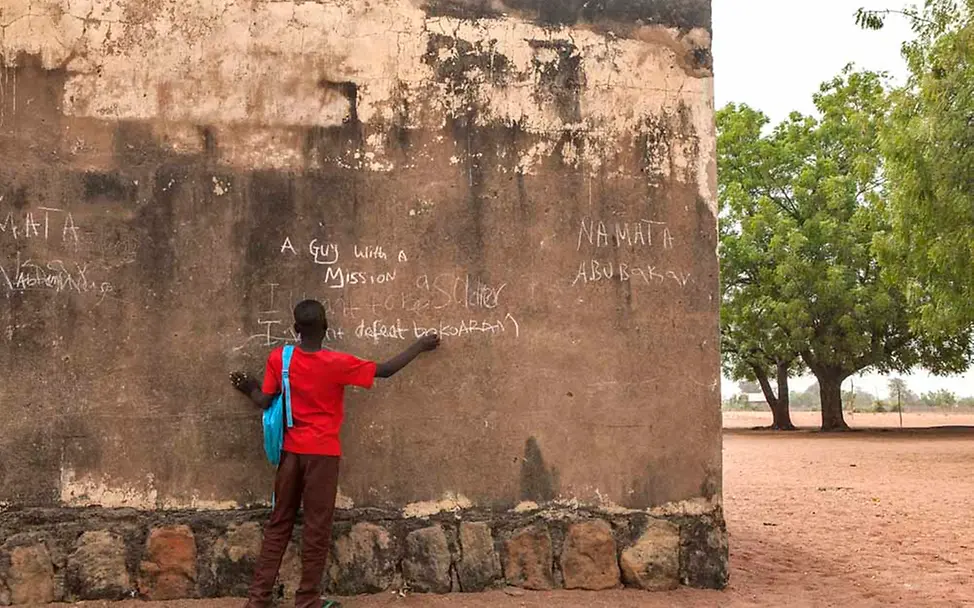 MATA
A Guy with A
Mission
I want to be a Soldier
I want defeat bokoARAM
NAMATA
ABUBakar